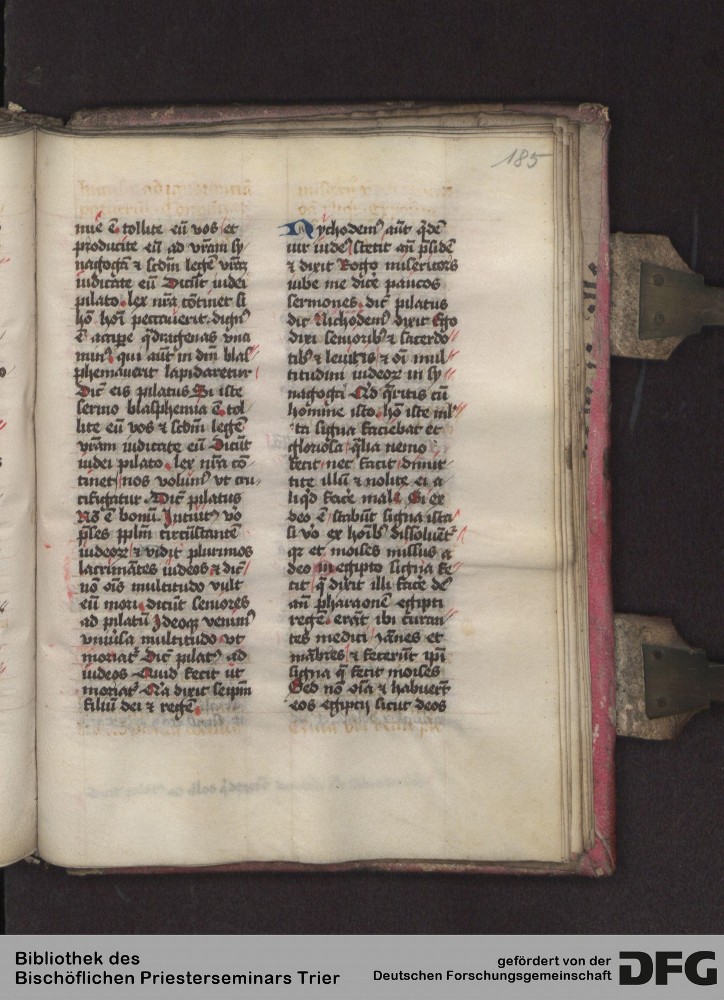 185
mīe ē tollite eū vos et
producite eū ad vr̄am sy
nagogā & scd̄m legē vr̄am
iudicate eū Dicūt iudei
pilato . lex nr̄a cōtinet si
hō hoī peccauerit . dignꝰ
ē accipe q̄dragenas vna
minꝰ qui aūt in dm̄ blas
phemauerit lapidaretur
Dic̄ eis pilatus Si iste
sermo blasphemia ē . tol
lite eū vos & scd̄m legē
vr̄am iudicate eū Dicūt
iudei pilato . lex nr̄a cō
tinet nos volumꝰ vt cru
cifigatur . Dic̄ pilatus
Nō ē bonū . Intuitꝰ vō
p̄ses pplm̄ circūstantē
iudeoꝝ & vidit plurimos
lacrimātes iudeos & dic̄
nō oīs multitudo vult
eū mori . dicūt seniores
ad pilatū Ideoqꝫ venimꝰ
vniūsa multitudo vt
moriat᷑ Dic̄ pilatꝰ ad
iudeos Quid fecit ut
moriat᷑ Q̄a dixit seipm̄
filiū dei & regē .
Nychodemꝰ aūt q̄dē
uir iudeꝰ stetit an̄ p̄sidē
& dixit Rogo misericors
iube me dice paucos
sermones . dic̄ pilatus
dic Nichodemꝰ dixit Ego
dixi senioribꝰ & sacerdo
tibꝰ & leuitis & oī mul
titudini iudeoꝝ in sy
nagoga Qid q̄ritis cū
homine isto . hō iste ml
ta signa faciebat et
gloriosa q̄lia nemo
fecit nec facit dimit
tite illū & nolite ei a
liqd face male Si ex
deo ē stabūt signa ista
si vō ex hoībꝰ dissoluēt᷑
qꝛ et moises missus a
deo in egipto signa fe
cit q̄ dixit illi face deꝰ
an̄ pharaonē egipti
regē . erāt ibi curan
tes medici iānes et
mābres & fecerūt ipī
signa q̄ fecit moises
Sed nō oīa & habuerūt
eos egiptij sicut deos
Bibliothek des
Bischöflichen Priesterseminars Trier
gefördert von der
Deutschen Forschungsgemeinschaft
DFG